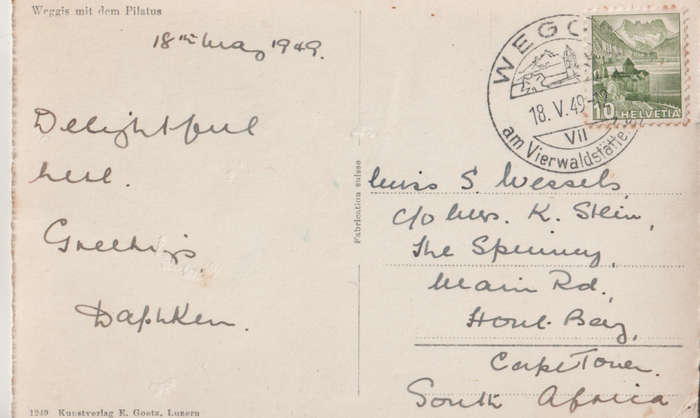 Weggis mit dem Pilatus
18th May 1949.
Delightful
here.
Greetings
DaphKen.
WEGG
18.V.49-12
VII
am Vierwaldstätte
10 HELVETIA
Fabrication suisse
Miss S. Wessels,
c/o Mrs. K. Stein,
The Spinney,
Main Rd.,
Hout-Bay,
Cape Town.
South Africa.
1249 Kunstverlag E. Goetz, Luzern